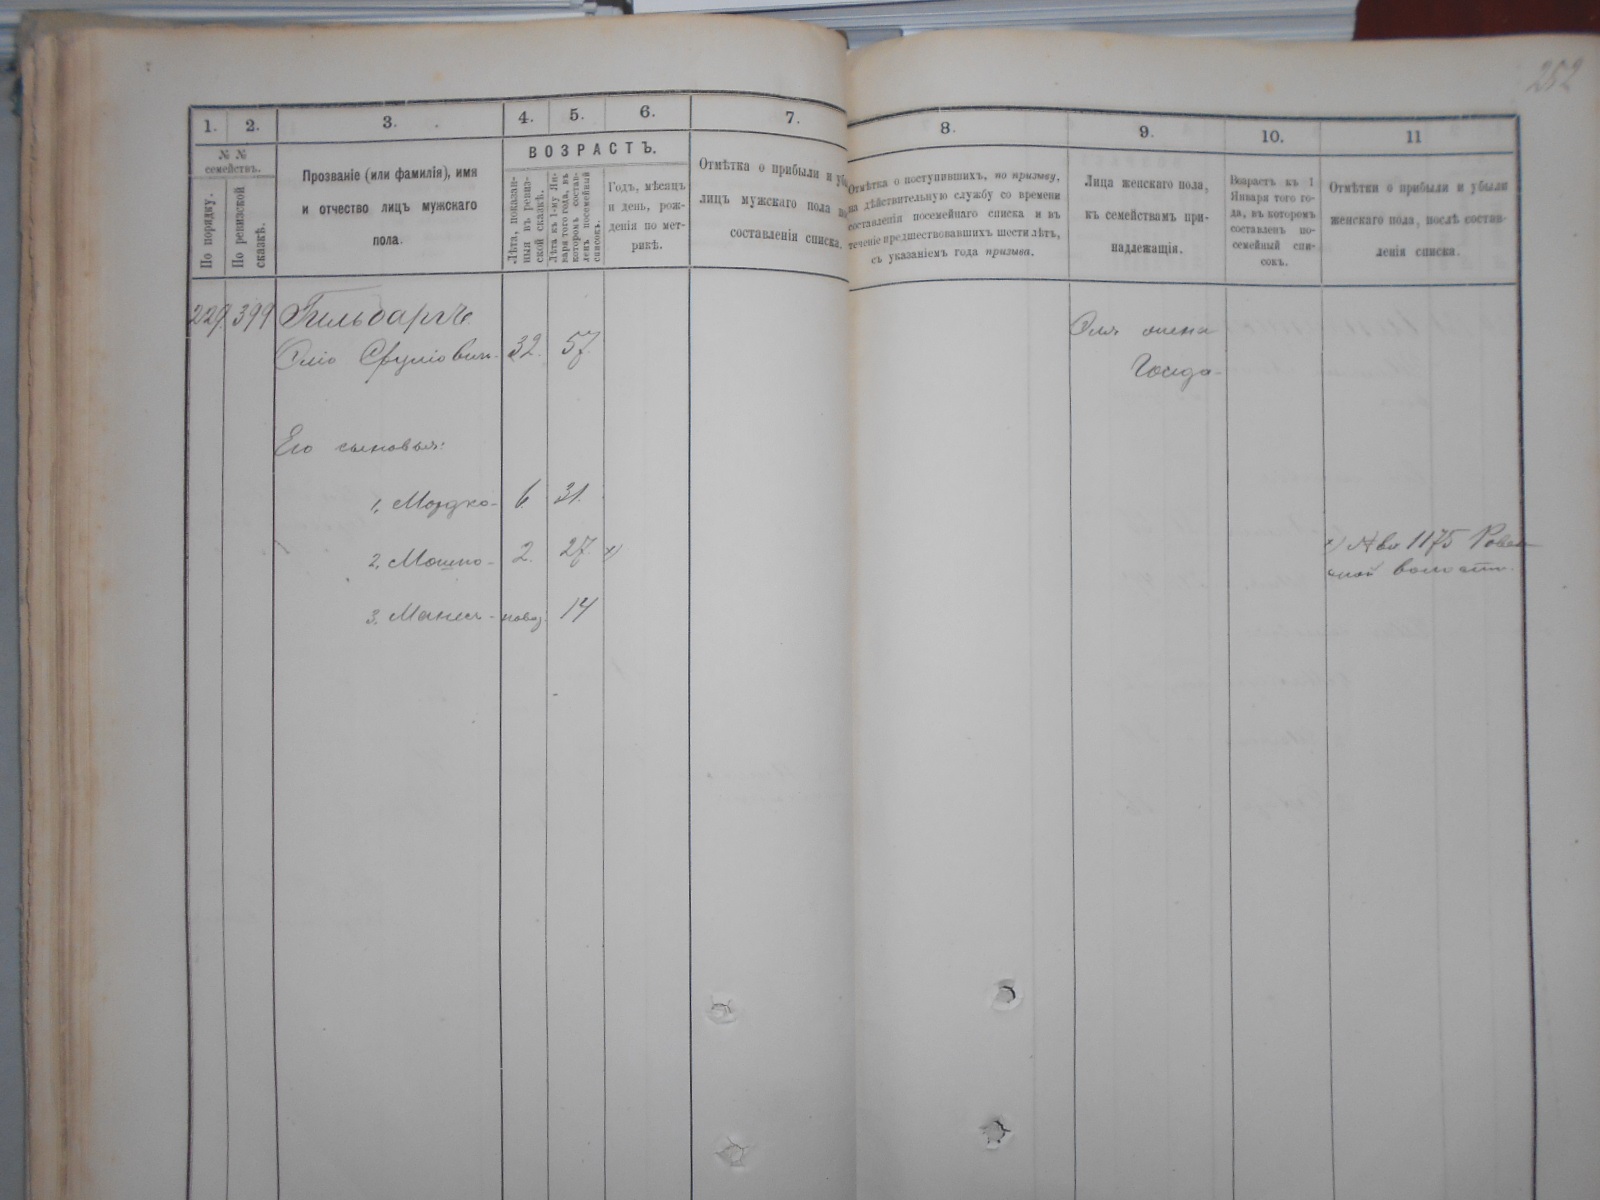 252
1. 2. 3. 4. 5. 6. 7. 8. 9. 10. 11
№ №
семействъ.
По порядку.
По ревизской
сказкѣ.
Прозваніе (или фамилія), имя
и отчество лицъ мужскаго
пола.
ВОЗРАСТЪ.
Лѣта, показан-
ныя въ ревиз-
ской сказкѣ.
Лѣта къ 1-му Ян-
варя того года, въ
которомъ состав-
ленъ посемейный
списокъ.
Годъ, мѣсяцъ
и день, рож-
денія по мет-
рикѣ.
Отмѣтка о прибыли и
лицъ мужскаго пола
составленія списка.
Отмѣтка о поступившихъ, по призыву,
на дѣйствительную службу со времени
составленія посемейнаго списка и въ
теченіе предшествовавшихъ шести лѣтъ,
съ указаніемъ года призыва.
Лица женскаго пола,
къ семействамъ при-
надлежащія.
Возрастъ къ 1
Января того го-
да, въ которомъ
составленъ по-
семейный спи-
сокъ.
Отмѣтки о прибыли и убыли
женскаго пола, послѣ состав-
ленія списка.
229 399
32. 57.
жена
Его сыновья:
1, Мордко- 6 31.
2, Мошко- 2. 27. х)
х) 1175
3, - 14